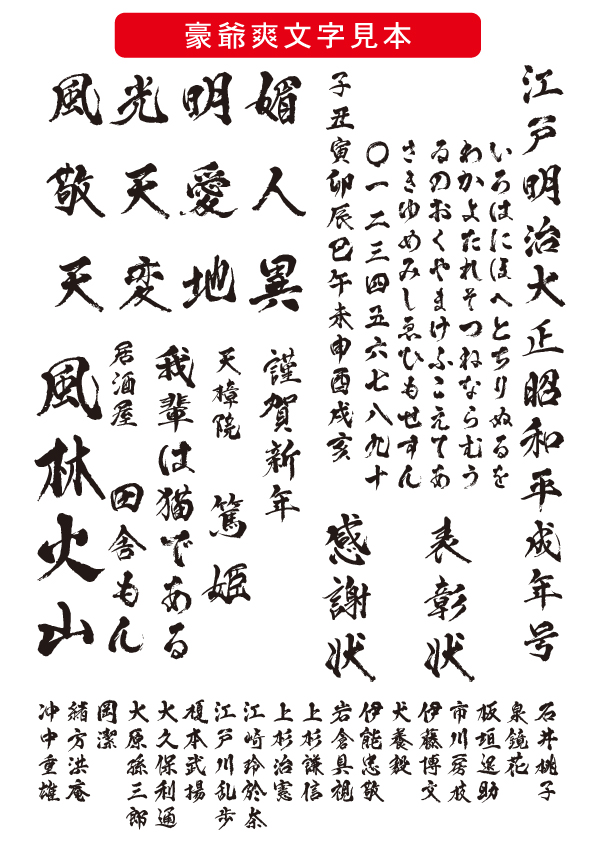 豪爺爽文字見本
江戸明治大正昭和平成年号
いろはにほへとちりぬるを
わかよたれそつねならむう
ゐのおくやまけふこえてあ
さきゆめみしゑひもせすん
〇一二三四五六七八九十
子丑寅卯辰巳午未申酉戌亥
表彰状
感謝状
媚人異
明愛地
光天変
風敬天
謹賀新年
天樟院 篤姫
我輩は猫である
居酒屋 田舎もん
風林火山
石井桃子
泉鏡花
板垣退助
市川房枝
伊藤博文
犬養毅
伊能忠敬
岩倉具視
上杉謙信
上杉治憲
江崎玲於奈
江戸川乱歩
榎本武揚
大久保利通
大原孫三郎
岡潔
緒方洪庵
沖中重雄